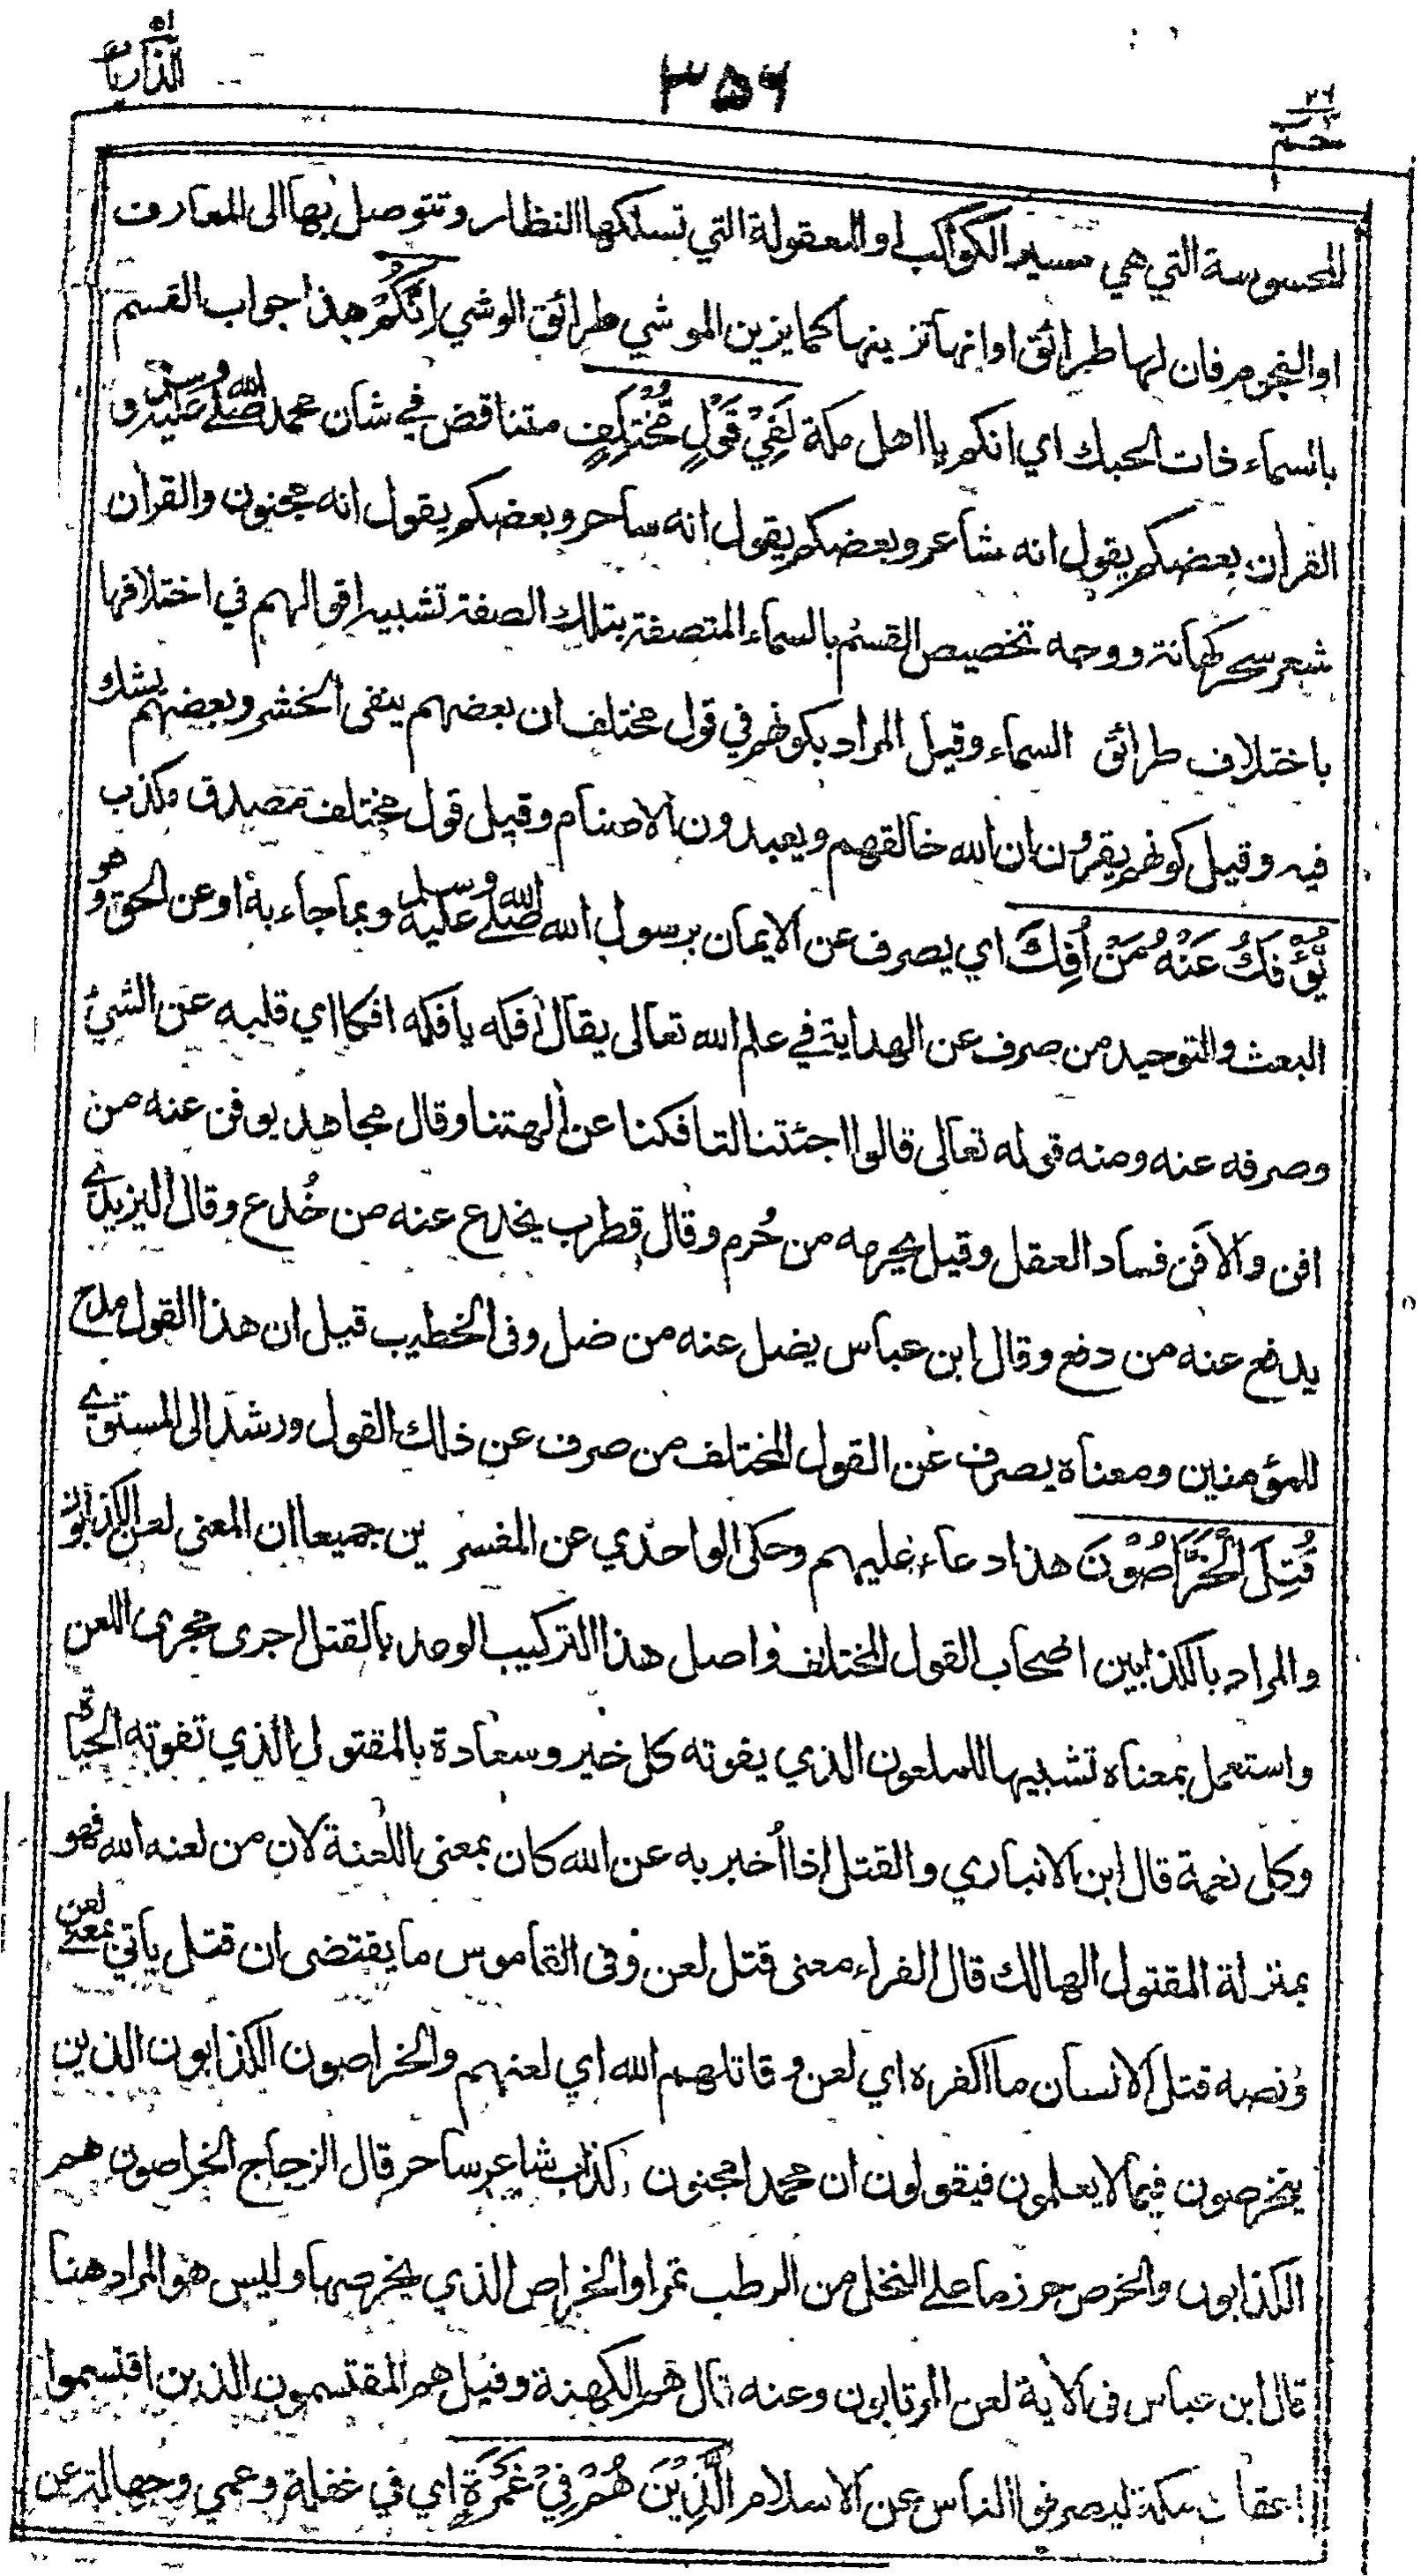 الذاريات ٥١
٣٥٦
حم ٢٦
المحسوسة التي هي مسير الكواكب او المعقولة التي تسلكها النظار وتتوصل بها الى المعارف
او النجوم فان لها طرائق او انها تزينها كما يزين الموشي طرائق الوشي اِنَّكُمْ هذا جواب القسم
بالسماء ذات الحبك اي انكم يا اهل مكة لَفِيْ قَوْلٍ مُّخْتَلِفٍ متناقض في شان محمد صلى الله عليه وسلم و
القران بعضكم يقول انه شاعر وبعضكم يقول انه ساحر وبعضكم يقول انه مجنون والقران
شعر سحر كهانة ووجه تخصيص القسم بالسماء المتصفة بتلك الصفة تشبيه اقوالهم في اختلافها
باختلاف طرائق السماء وقيل المراد بكونهم في قول مختلف ان بعضهم ينفى الحشر وبعضهم يشك
فيه وقيل كونهم يقرون ان الله خالقهم ويعبدون الاصنام وقيل قول مختلف مصدق ومكذب
يُّؤْفَكُ عَنْهُ مَنْ اُفِكَ اي يصرف عن الايمان برسول الله صلى الله عليه وسلم وبما جاء به او عن الحق وهو
البعث والتوحيد من صرف عن الهداية في علم الله تعالى يقال افكه يافكه افكا اي قلبه عن الشيء
وصرفه عنه ومنه قوله تعالى قالوا اجئتنا لتافكنا عن الهتنا وقال مجاهد يوفن عنه من
افن والافن فساد العقل وقيل يحرمه من حُرم وقال قطرب يخدع عنه من خُدع وقال اليزيدي
يدفع عنه من دفع وقال ابن عباس يضل عنه من ضل وفى الخطيب قيل ان هذا القول مدح
للمؤمنين ومعناه يصرف عن القول المختلف من صرف عن ذلك القول ورشد الى المستوي
قُتِلَ الْخَرَّاصُوْنَ هذا دعاء عليهم وحكى الواحدي عن المفسرين جميعا ان المعنى لعن الكذابون
والمراد بالكذابين اصحاب القول المختلف واصل هذا التركيب الوعد بالقتل اجرى مجرى اللعن
واستعمل بمعناه تشبيها للملعون الذي يفوته كل خير وسعادة بالمقتول الذي تفوته الحياة
وكل نعمة قال ابن الانباري والقتل اذا اُخبر به عن الله كان بمعنى اللعنة لان من لعنه الله فهو
بمنزلة المقتول الهالك قال الفراء معنى قتل لعن وفى القاموس ما يقتضى ان قتل ياتي بمعنى لعن
ونصه قتل الانسان ما اكفره اي لعن وقاتلهم الله اي لعنهم والخراصون الكذابون الذين
يتخرصون فيما لا يعلمون فيقولون ان محمدا مجنون كذاب شاعر ساحر قال الزجاج الخراصون هم
الكذابون والخرص حرز ما على النخل من الرطب تمرا والخراص الذي يخرصها وليس هو المراد هنا
قال ابن عباس فى الاية لعن المرتابون وعنه قال هم الكهنة وقيل هم المقتسمون الذين اقتسموا
اعقاب مكة ليصرفوا الناس عن الاسلام الَّذِيْنَ هُمْ فِيْ غَمْرَةٍ اي في غفلة وعمى وجهالة عن